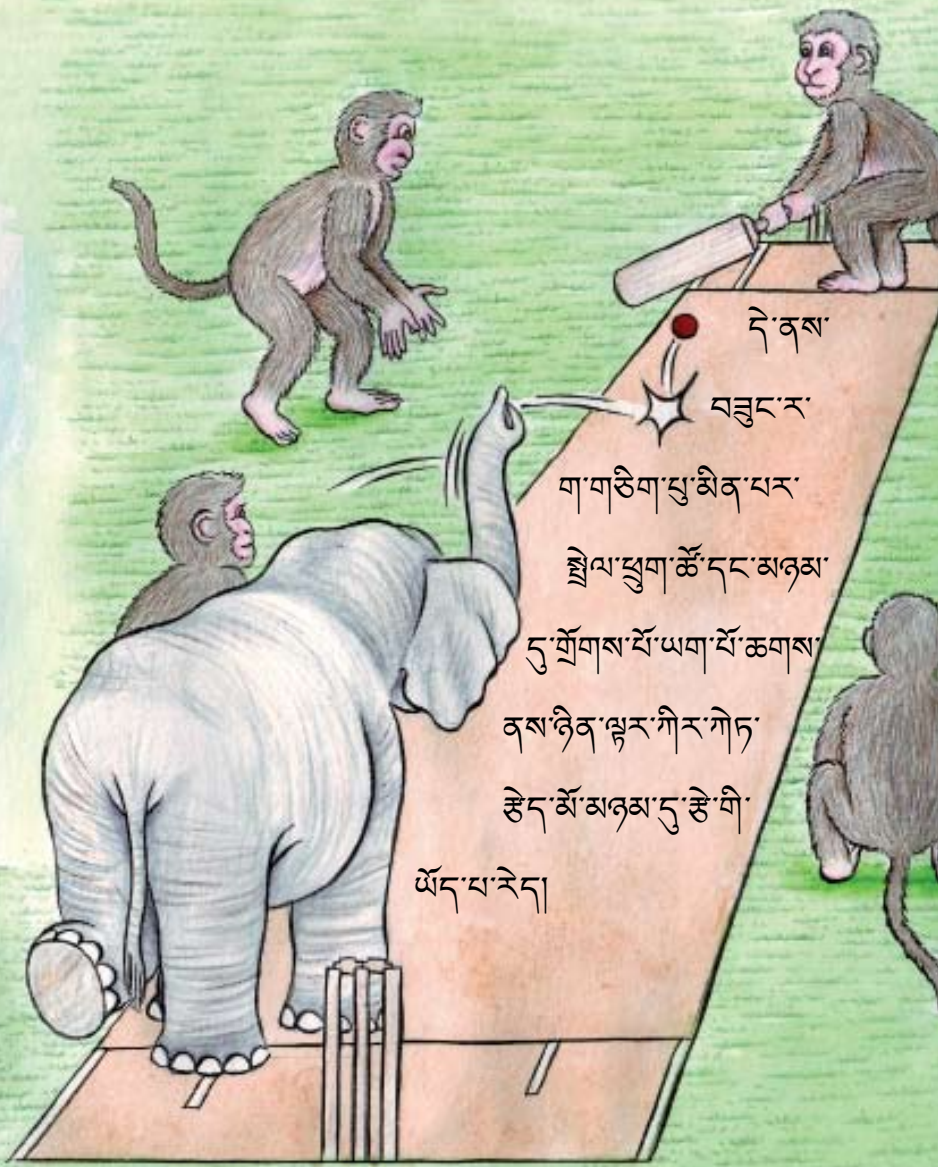 དེ་ནས་
བཟུང་ར་
ག་གཅིག་པུ་མིན་པར་
སྤྲེལ་ཕྲུག་ཚོ་དང་མཉམ་
དུ་གྲོགས་པོ་ཡག་པོ་ཆགས་
ནས་ཉིན་ལྟར་ཀིར་ཀེཏ་
རྩེད་མོ་མཉམ་དུ་རྩེ་གི་
ཡོད་པ་རེད།